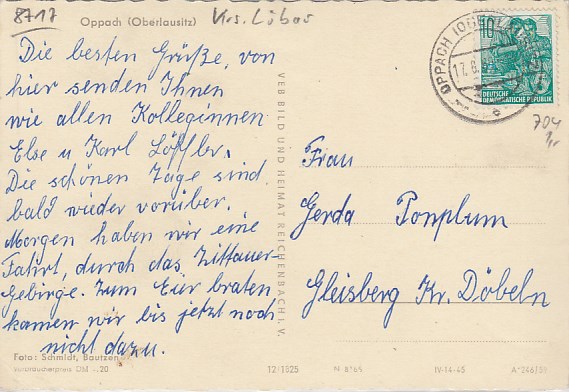 8717
Oppach (Oberlausitz)
Krs. Löbau
Die besten Grüße, von
hier senden Ihnen
wie allen Kolleginnen
Else u Karl Löffler.
Die schönen Tage sind
bald wieder vorüber.
Morgen haben wir eine
Fahrt, durch das Zittauer-
Gebirge. Zum Eier braten
kamen wir bis jetzt noch
nicht dazu.
Foto: Schmidt, Bautzen
Verbraucherpreis DM -.20
VEB BILD UND HEIMAT REICHENBACH I. V.
OPPACH
17.8.
10
DEUTSCHE
DEMOKRATISCHE REPUBLIK
704
Frau
Gerda Ponplum
Gleisberg Kr. Döbeln
12/1825
IV-14-45